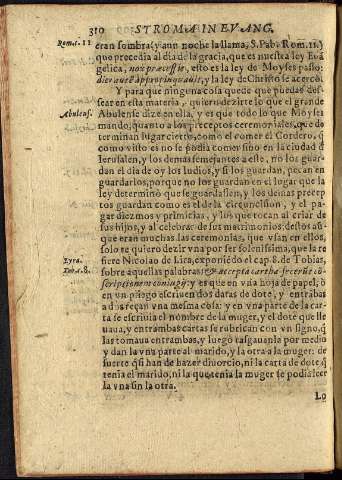 310 STROMA IN EVANG.
Rom. 11 eran sombra (y aun noche la llama, S. Pab. Rom. 11.) y
que precedia al dia de la gracia, que es nuestra ley Euã
gelica, nox præcessit, esto es la ley de Moyses passo:
dies autẽ appropinquauit, y la ley de Christo se acercò.
Y para que ninguna cosa quede que puedas des
sear en esta materia, quiero dezirte lo que el grande
Abulens. Abulense dize en ella, y es que todo lo que Moyses
mandò, quanto a los preceptos ceremoniales, que de
terminan lugar cierto, como el comer el Cordero, q̃
como visto es no se podia comer sino en la ciudad d̃
Ierusalen, y los demas semejantes a este, no los guar
dan el dia de oy los Iudios, y si los guardan, pecan en
guardarlos, porque no los guardan en el lugar que la
ley determinò que se guardassen, y los demas precep
tos guardan como es el de la circuncision, y el pa-
gar diezmos y primicias, y los que tocan al criar de
sus hijos, y al celebrar de sus matrimonios: destos aũ-
que eran muchas las ceremonias, que vsan en ellos,
solo se quiero dezir vna por ser solenissima, que la re
Lyra. fiere Nicolao de Lira, exponiẽdo el cap. 8. de Tobias,
Tob. 8. sobre aquellas palabras: & accepta cartha fecerũt cõ-
scriptionem coniugij: y es que en vna hoja de papel, ò
en vn pliego escriuen dos cartas de dote, y entrãbas
a dos reçan vna mesma cosa: y en vna parte de la car
ta se escriuia el nombre de la muger, y el dote que lle
uaua, y entrambas cartas se rubrican con vn signo, q̃
las tomaua entrambas, y luego rasgauanlo por medio
y dan la vna parte al marido, y la otra a la muger: de
suerte q̃ si han de hazer diuorcio, ni la carta de dote q̃
tenia el marido, ni la que tenia la muger se podia leer
la vna sin la otra.
Lo